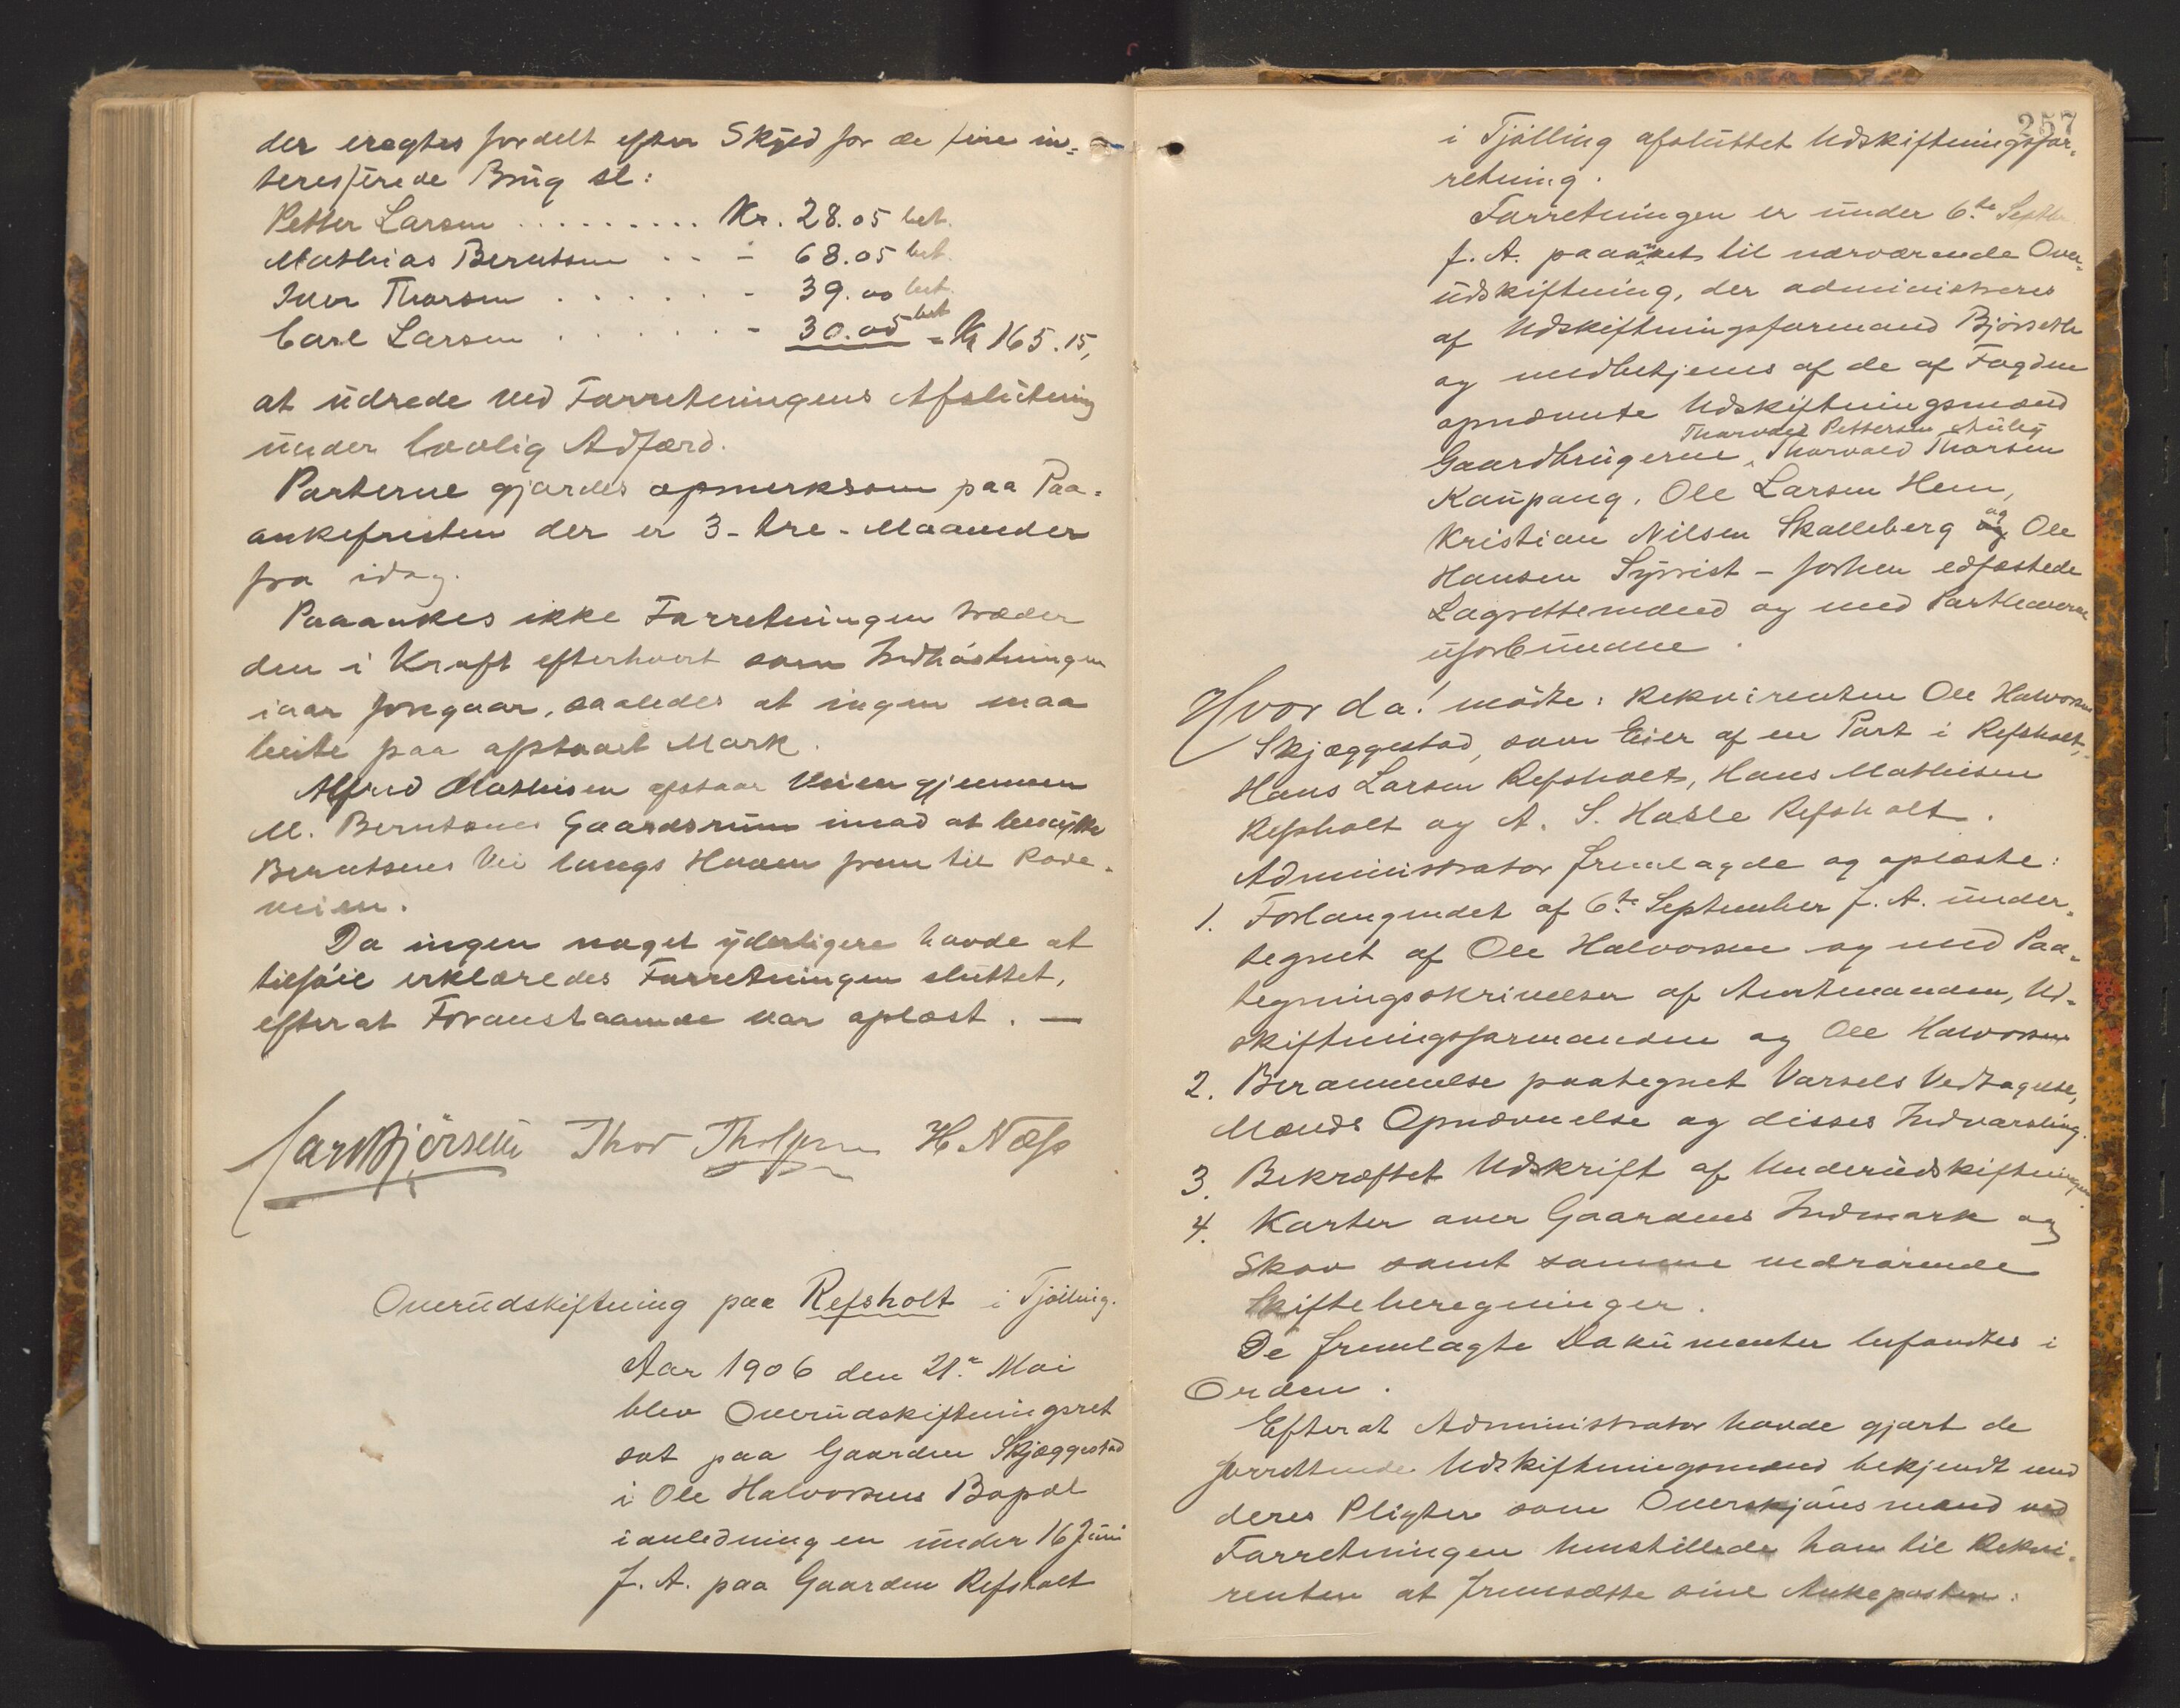 der eragtes fordelt efter Skyld for de fire in-
teresserede Brug sl:
Petter Larsen ......... Kr. 28.05 bet.
Mathias Berntsen .. - 68.05 bet.
Iver Thorsen ...... - 39.00 bet.
Carl Larsen ...... - 30.05 bet = Kr 165.15,
at udrede ved Forretningens Afslutning
under lovlig Adfærd.
Parterne gjordes opmerksom paa Paa-
ankefristen der er 3 - tre - Maaneder
fra idag.
Paaankes ikke Forretningen træder
den i Kraft efterhvert som Indhøstningen
iaar foregaar, saaledes at ingen maa
beite paa afstaaet Mark.
Alfred Mathisen afstaar Veien gjennem
M. Berntsens Gaardsrum imod at benytte
Berntsens Vei langs Haven frem til Rode-
veien.
Da ingen noget yderligere havde at
tilføie erklæredes Forretningen sluttet,
efterat Foranstaaende var oplæst. —
Carl Bjørseth Thor Tholfsen H. Næss
Overudskiftning paa Refsholt i Tjølling.
Aar 1906 den 21de Mai
blev Overudskiftningsret
sat paa Gaarden Skjæggestad
i Ole Halvorsens Bopæl
ianledning en under 16 Juni
f. A. paa Gaarden Refsholt
257
i Tjølling afsluttet Udskiftningsfor-
retning.
Forretningen er under 6te Septbr.
f. A. paaanket til nærværende Over-
udskiftning, der administreres
af Udskiftningsformand Bjørseth
og medbetjenes af de af Fogden
opnævnte Udskiftningsmænd
Thorvald Pettersen Auby
Gaardbrugerne Thorvald Thorsen
Kaupang, Ole Larsen Hem,
Kristian Nilsen Skalleberg og Ole
Hansen Syrrist - forhen edfæstede
Lagrettemænd og med Parthaverne
uforbundne.
Hvor da! mødte: Rekvirenten Ole Halvorsen
Skjæggestad, som Eier af en Part i Refsholt,
Hans Larsen Refsholt, Hans Mathisen
Refsholt og A. S. Hasle Refsholt.
Administrator fremlagde og oplæste:
1. Forlangendet af 6te September f. A. under-
tegnet af Ole Halvorsen og med Paa-
tegningsskrivelser af Amtmanden, Ud-
skiftningsformanden og Ole Halvorsen
2. Berammelse paategnet Varsels Vedtagelse,
Mænds Opnævnelse og disses Indvarsling.
3. Bekræftet Udskrift af Underudskiftningen
4. Karter over Gaardens Indmark og
Skov samt samme vedrørende
Skifteberegninger.
De fremlagte Dokumenter befandtes i
Orden.
Efterat Administrator havde gjort de
forrettende Udskiftningsmænd bekjendt med
deres Pligter som Overskjønsmænd ved
Forretningen henstillede han til Rekvi-
renten at fremsætte sine Ankeposter: